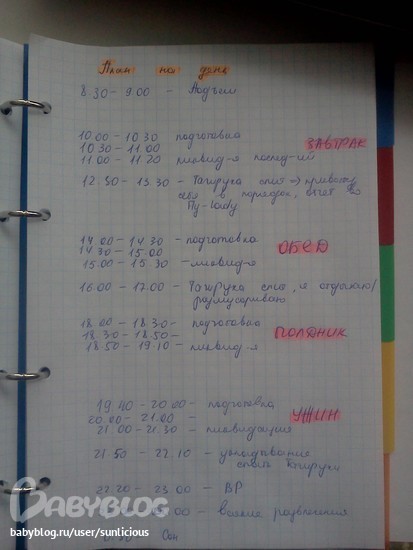 План на день
8.30 - 9.00 - Подъем
10.00 - 10.30 подготовка
10.30 - 11.00
ЗАВТРАК
11.00 - 11.20 ликвид-я послед-ий
12.50 - 13.30 - спит => привести
себя в порядок, отчет в
Fly-Lady
14.00 - 14.30 - подготовка
14.30 - 15.00
ОБЕД
15.00 - 15.30 - ликвид-я
16.00 - 17.00 - спит, я отдыхаю/
размусориваю
18.00 - 18.30 - подготовка
18.30 - 18.50 -
ПОЛДНИК
18.50 - 19.10 - ликвид-я
19.40 - 20.00 - подготовка
20.00 - 21.00 -
УЖИН
21.00 - 21.30 - ликвидация
21.50 - 22.10 - укладывание
спать
22.20 - 23.00 - ВР
00 - всякие развлечения
Сон
BABYBLOG
babyblog.ru/user/sunlicious